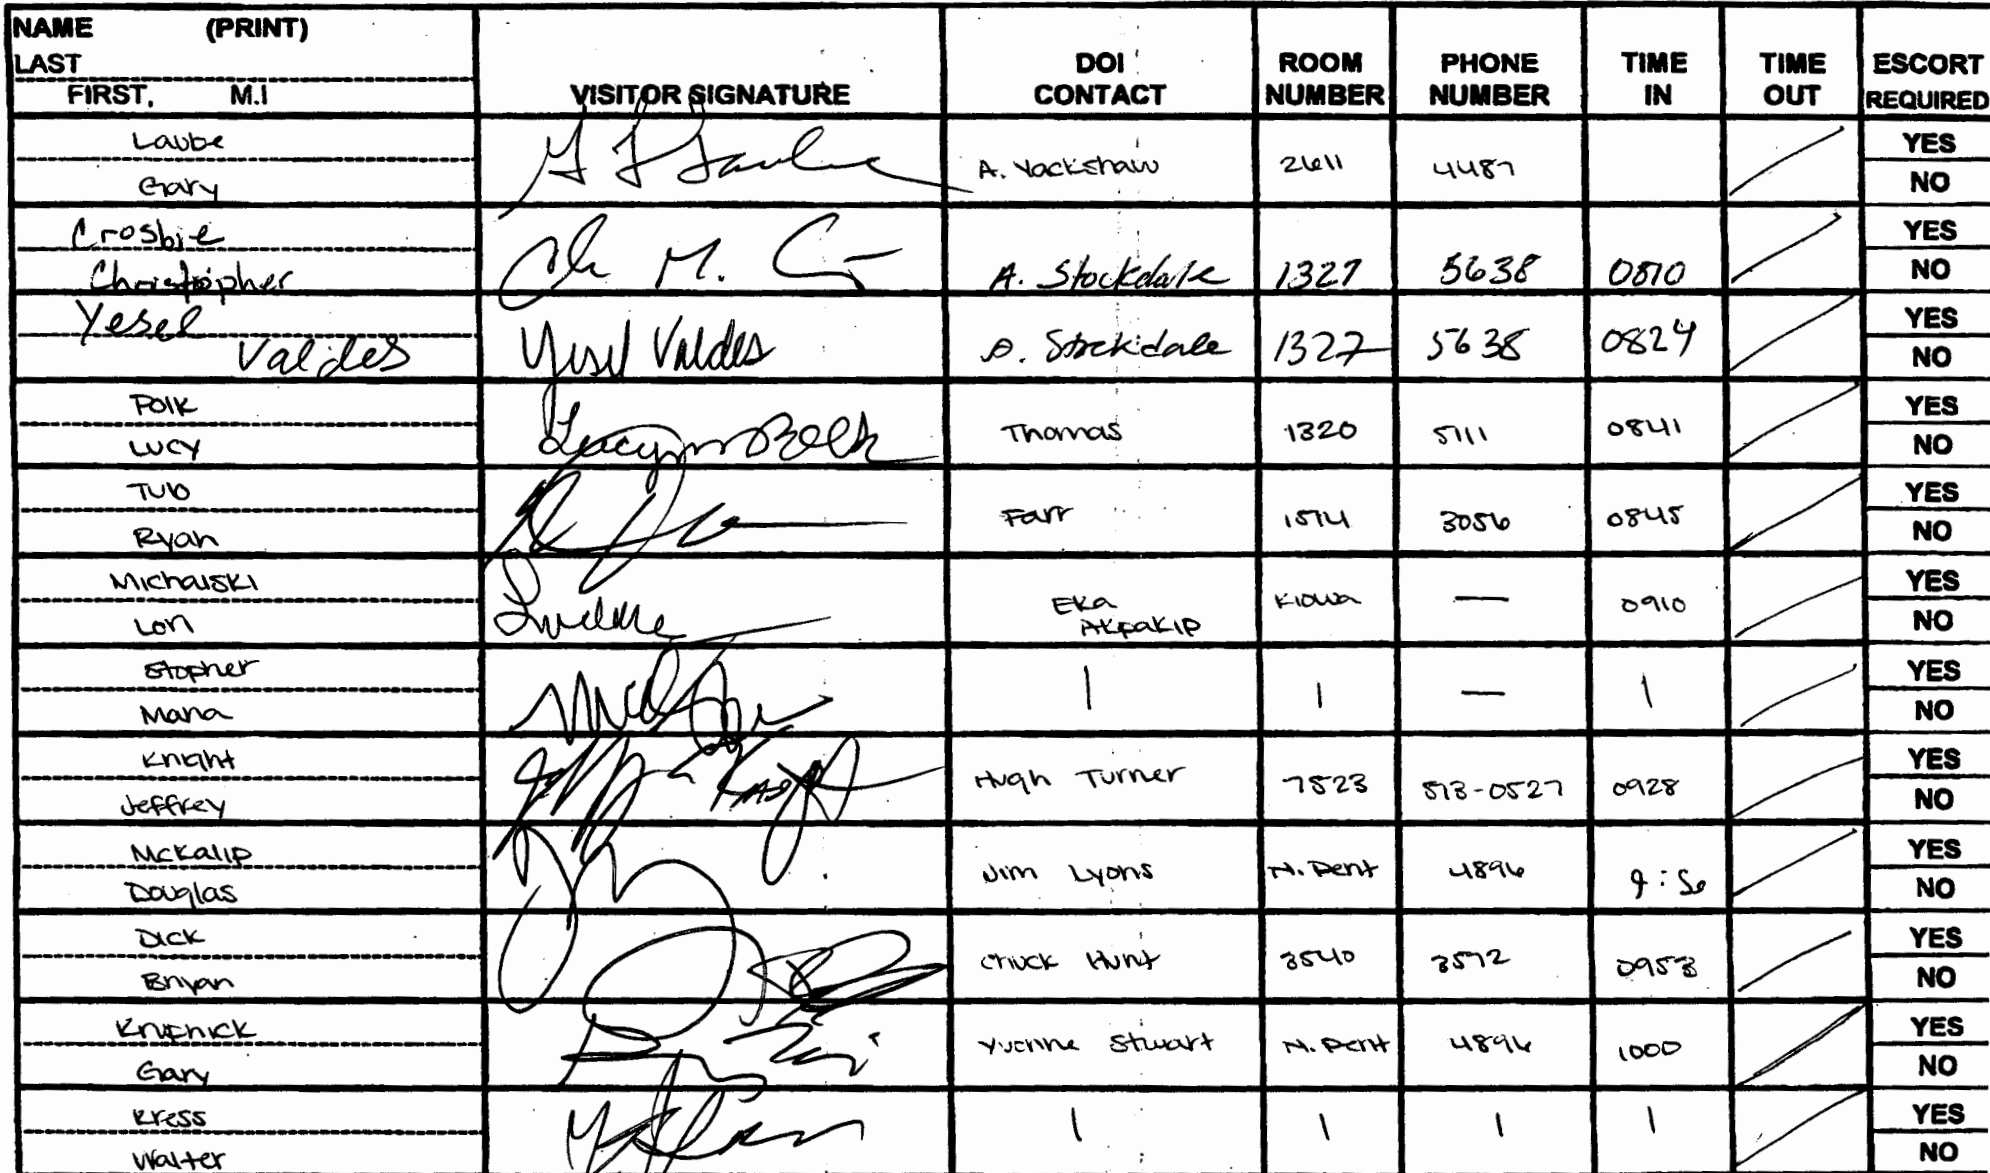 NAME (PRINT)
LAST
FIRST, M.I
VISITOR SIGNATURE
DOI CONTACT
ROOM NUMBER
PHONE NUMBER
TIME IN
TIME OUT
ESCORT REQUIRED
Laube
Gary
A. Yackshaw 2611 4487
YES
NO
Crosbie
Christopher
A. Stockdale 1327 5638 0810
YES
NO
Yesel
Valdes
Yesel Valdes
Stockdale 1327 5638 0824
YES
NO
Polk
Lucy
Thomas 1320 5111 0841
YES
NO
Ryan
Farr 1574 3056 0845
YES
NO
Michalski
Lori
Eka
Akpakip
Kiowa — 0910
YES
NO
Stopher
Maria
| | — |
YES
NO
Knight
Jeffrey
Hugh Turner 7523 513-0527 0928
YES
NO
McKalip
Douglas
Jim Lyons N. Pent 4896
YES
NO
Dick
Bryan
Chuck Hunt 3540 3572 0953
YES
NO
Krupnick
Gary
Yvonne Stuart N. Pent 4896 1000
YES
NO
Kress
Walter
| | | |
YES
NO